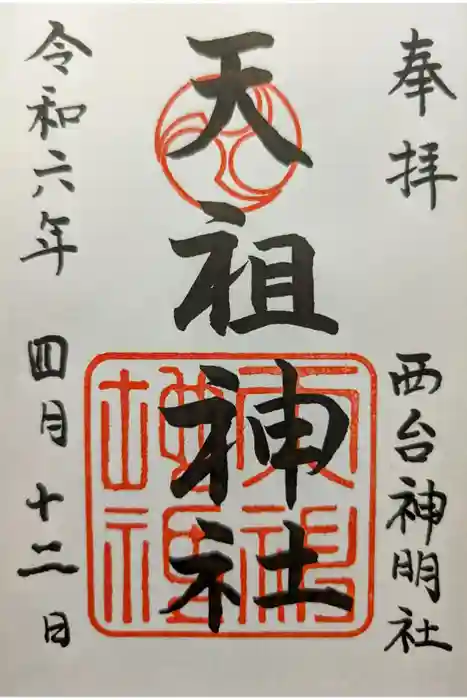 奉拝
西台神明社
天祖神社
令和六年 四月十二日